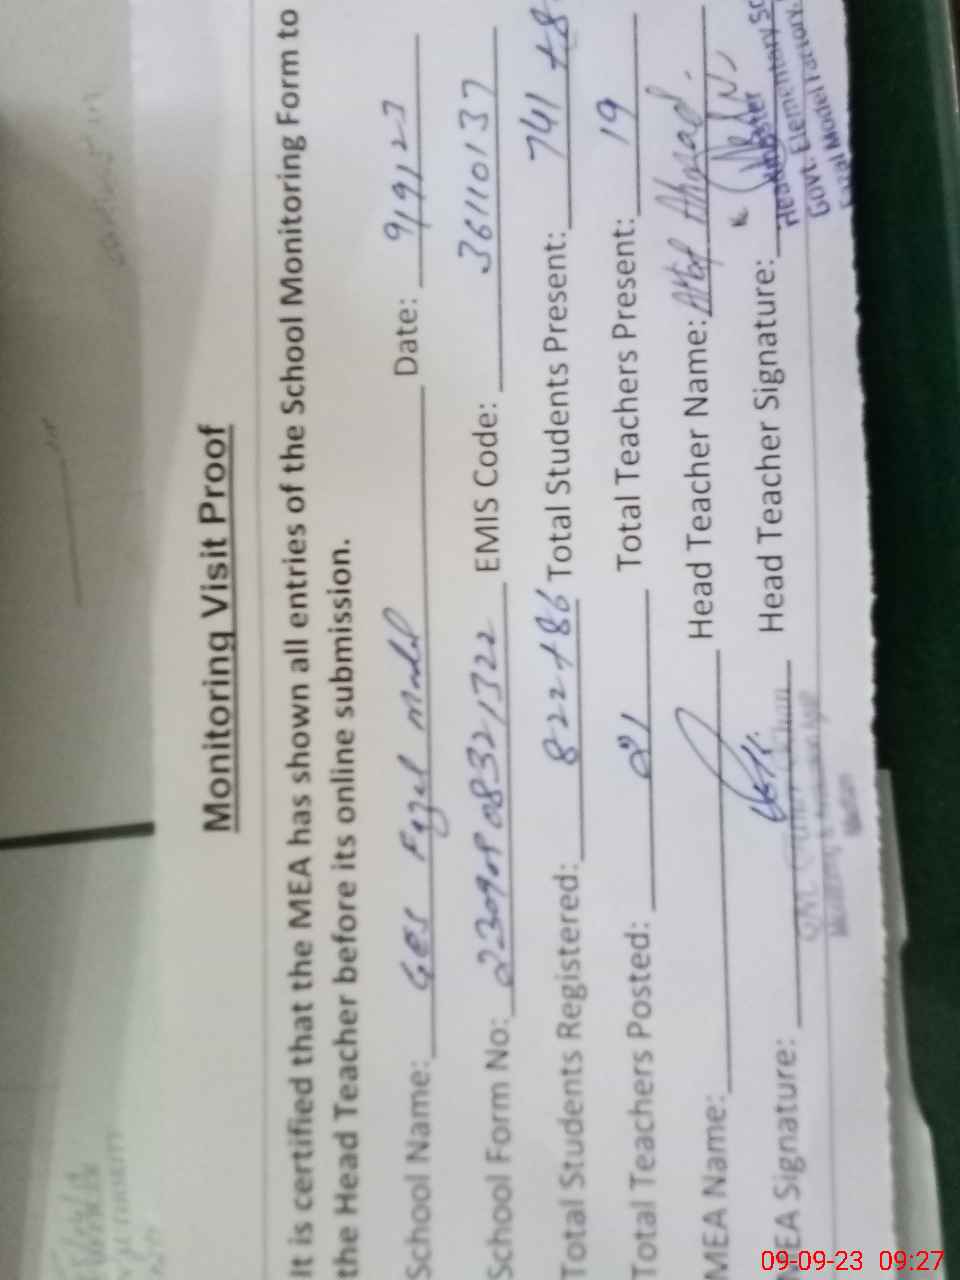 Monitoring Visit Proof
It is certified that the MEA has shown all entries of the School Monitoring Form to
the Head Teacher before its online submission.
School Name: GES Fazal Model Date: 9/9/23
School Form No: EMIS Code: 36110137
Total Students Registered: 822+86 Total Students Present: 741 +8
Total Teachers Posted: 21 Total Teachers Present: 19
MEA Name: Head Teacher Name: Altaf Ahmad.
MEA Signature: Head Teacher Signature:
Headmaster
Govt: Elementary Sc
Fazal Model Factory.
09-09-23 09:27